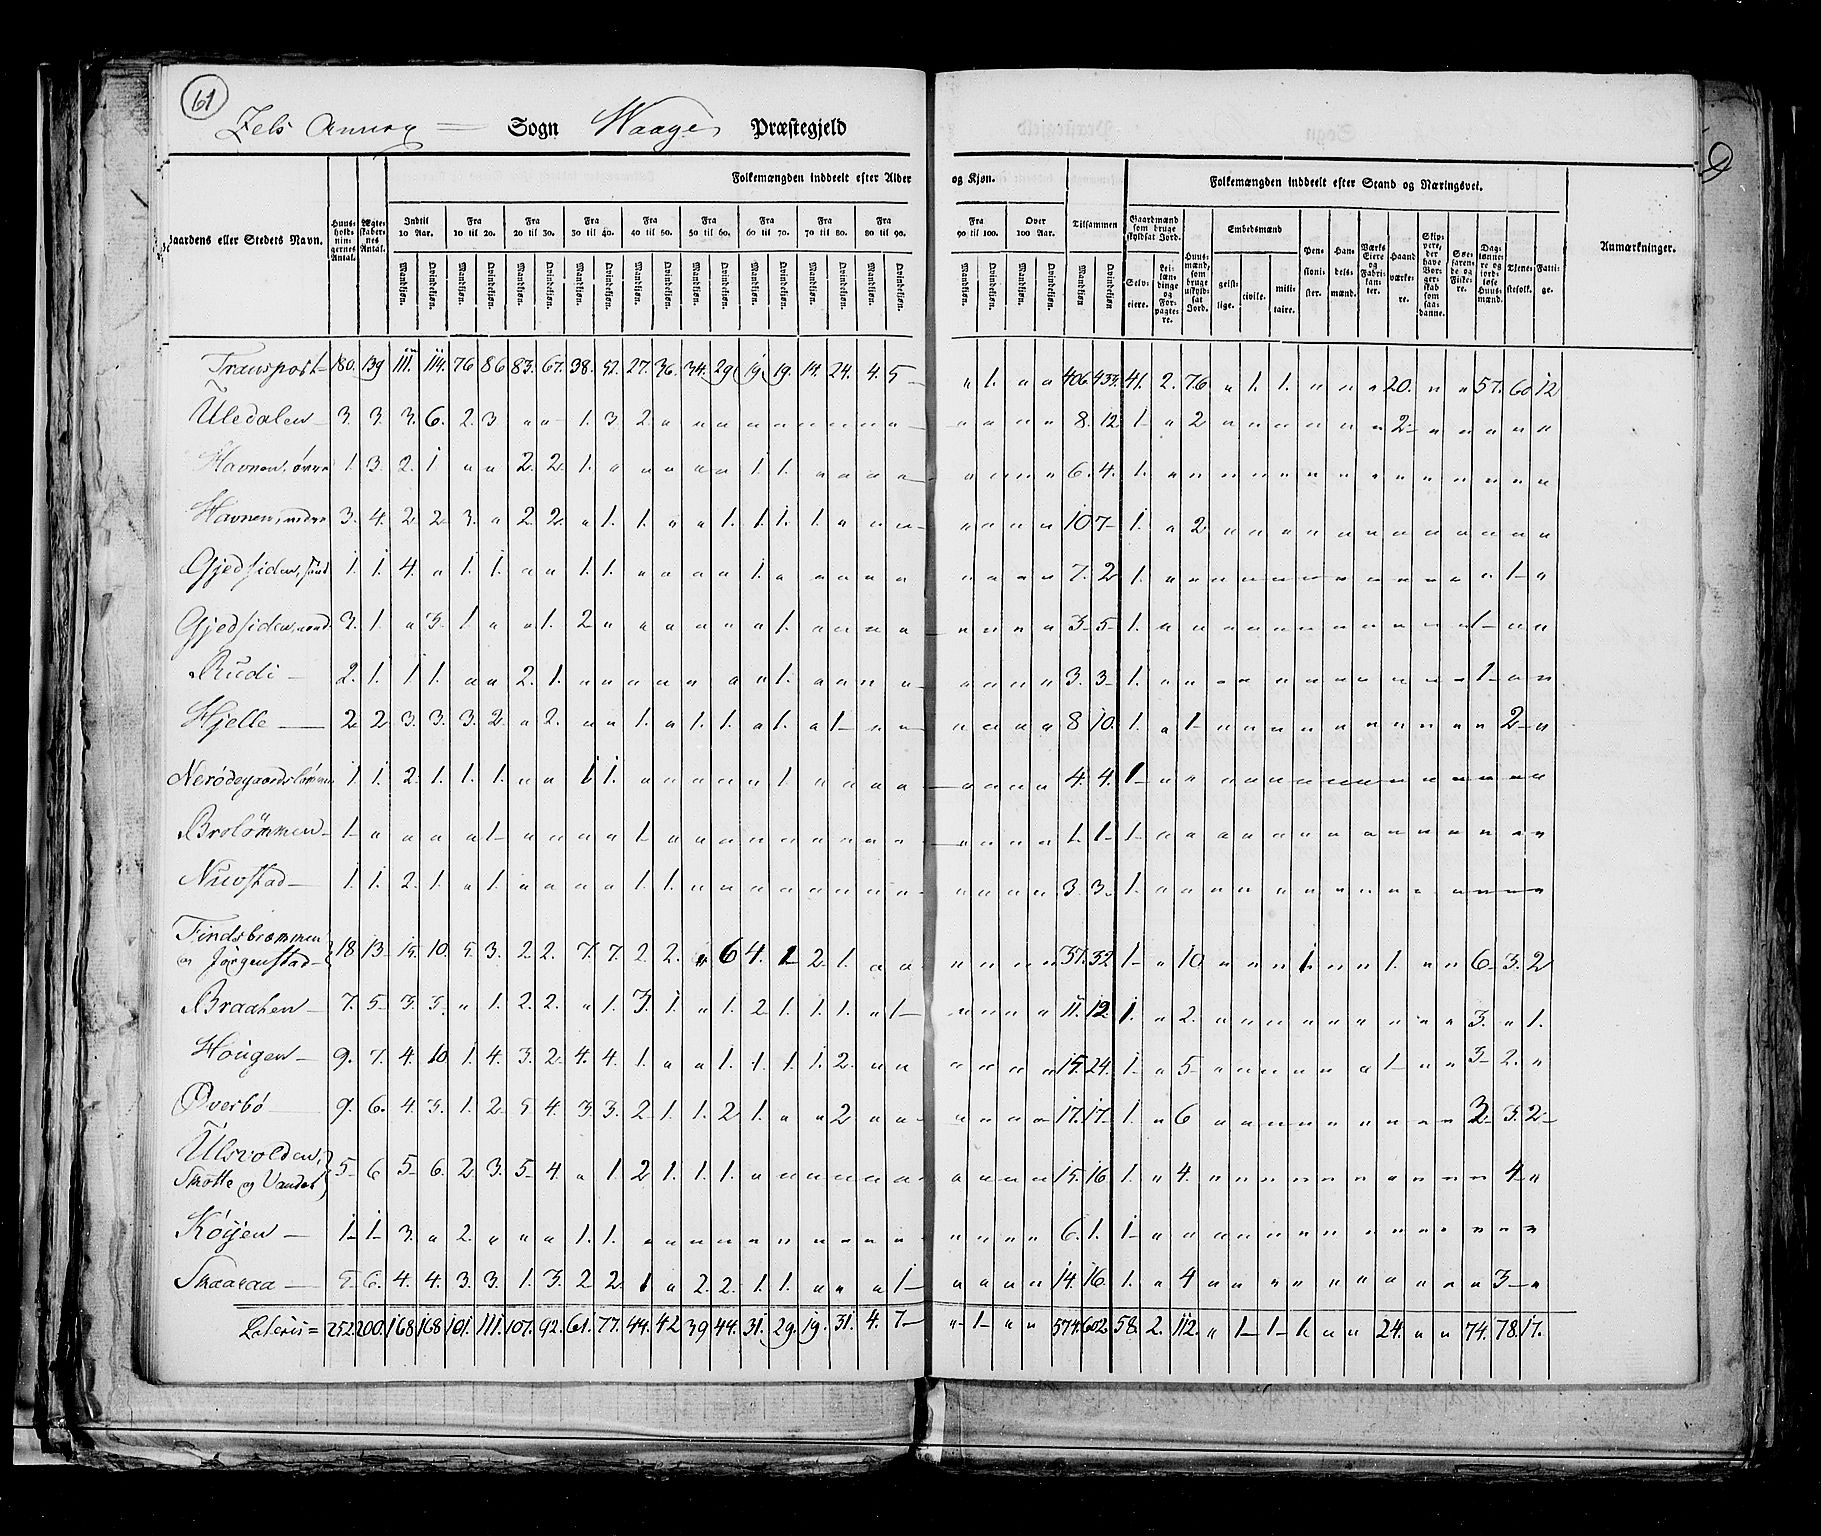 61
Sels Annex — Sogn Waage Præstegjeld
Folkemængden inddeelt efter Alder og Kjøn.
Folkemængden inddeelt efter Stand og Næringsvei.
Gaardens eller Stedets Navn.
Huus-holdnin-gernes Antal.
Ægte-skaber-nes Antal.
Indtil 10 Aar.
Fra 10 til 20.
Fra 20 til 30.
Fra 30 til 40.
Fra 40 til 50.
Fra 50 til 60.
Fra 60 til 70.
Fra 70 til 80.
Fra 80 til 90.
Fra 90 til 100.
Over 100 Aar.
Tilsammen
Mandkjøn. Qvindekjøn.
Gaardmænd som bruge skyldsat Jord.
Selv-eiere.
Lei-lændinge og For-pagtere.
Huus-mænd, som bruge uskyld-sat Jord.
Embedsmænd
geist-lige. civile. mili-taire.
Pen-sioni-ster.
Han-dels-mænd.
Værks Eiere og Fabri-kanter.
Haand-værke-re.
Skip-pere, der have Bor-ger-skab som saa-danne.
Søe-farende og Fiske-re.
Dag-lønne-re og jorde-løse Huus-mænd.
Tjene-stefolk.
Fatti-ge.
Anmærkninger.
Transport 180. 139 111. 114. 76 86 83. 67. 38. 52. 27. 36. 34. 29 19 19. 14. 24. 4. 5 „ 1. „ „ 406. 433. 41. 2. 76 „ 1. 1. „ „ „ 20. „ „ 57. 60 12
Uledalen 3. 3. 3. 6. 2. 3 „ „ 1. 3. 2. „ „ „ „ „ „ „ „ „ „ „ „ „ 8. 12. 1. „ 2 „ „ „ „ „ „ 2 „ „ „ „ „
Havnen, øvre 1. 3. 2. 1. „ „ 2. 2. 1. „ „ „ „ „ 1. 1. „ „ „ „ „ „ „ „ 6. 4. 1. „ „ „ „ „ „ „ „ „ „ „ „ „ „
Havnen, nedre 3. 4. 2. 2. 3. „ 2. 2. „ 1. 1. „ „ 1. 1. 1. 1. „ „ „ „ „ „ „ 10 7 1. „ 2 „ „ „ „ „ „ „ „ „ „ „ „
Gjedsiden, sønd 1. 1. 4. „ 1. 1. „ „ 1. 1. „ „ „ „ 1. „ „ „ „ „ „ „ „ „ 7. 2 1. „ „ „ „ „ „ „ „ „ „ „ „ 1 „
Gjedsiden, nord 3. 1. „ 3. 1 „ „ 1. 2 „ „ „ „ „ „ 1. „ „ „ „ „ „ „ „ 3 5 1. „ „ „ „ „ „ „ „ „ „ „ 1 „ „
Rudi 2. 1. 1 1. „ „ 2. 1. „ „ „ „ „ „ „ 1. „ „ „ „ „ „ „ „ 3. 3 1. „ „ „ „ „ „ „ „ „ „ „ 1 „ „
Hjelle 2 2 3. 3. 3. 2. „ 2. „ „ 1. „ 1. 1. „ 1. „ 1 „ „ „ „ „ „ 8 10. 1. „ 1 „ „ „ „ „ „ „ „ „ „ 2 „
1. 1. 2. 1. 1. 1. „ „ 1 1. „ „ „ „ „ 1. „ „ „ „ „ „ „ „ 4. 4. 1 „ „ „ „ „ „ „ „ „ „ „ „ „ „
Brolømmen 1 „ „ „ „ 1 „ „ „ „ 1 „ „ „ „ „ „ „ „ „ „ „ „ „ 1. 1 1 „ „ „ „ „ „ „ „ „ „ „ „ „ „
Nuvstad 1. 1. 2. 1. „ 1. „ „ „ „ 1. 1. „ „ „ „ „ „ „ „ „ „ „ „ 3. 3. 1. „ „ „ „ „ „ „ „ „ „ „ „ „ „
Findsbrømmen
og Jørgenstad 18 13 15. 10. 5 3. 2 2. 7. 7. 2 2. „ 6 4. 1 2. 1. „ „ „ „ „ „ 37. 32. 1 „ 10 „ „ „ 1 „ „ 1. „ „ 6 3. 2
Braaten 7. 5 3. 3. „ 1. 2. 2. „ 1. 3. 1. „ 1. 2. 1. 1. 1. „ 1 „ „ „ „ 11. 12. 1. „ 2. „ „ „ „ „ „ „ „ „ 3. „ 1.
Hougen 9. 7. 4. 10. 1. 4. 3. 2. 4. 4. 1. „ „ 1. 1. 1. 1. 2. „ „ „ „ „ „ 15. 24. 1. „ 5 „ „ „ „ „ „ 1 „ „ 3 2. „
Øverbø 9. 6. 4. 3. 1. 2 5 4. 3. 3. 2 1. 1. 2 1. „ „ 2 „ „ „ „ „ „ 17. 17. 1. „ 6 „ „ „ „ „ „ „ „ „ 2 3. 2
Ulsvolden,
Skotte og 5 6 5 6. 2 3. 5 4. „ 1. 2 1. 1. 1. „ „ „ „ „ „ „ „ „ „ 15. 16 1. „ 4. „ „ „ „ „ „ „ „ „ „ 4 „
Køyen 1 1 3. „ 2. „ „ „ 1. 1. „ „ „ „ „ „ „ „ „ „ „ „ „ „ 6. 1. 1 „ „ „ „ „ „ „ „ „ „ „ „ „ „
Skaaraa 5. 6. 4. 4. 3. 3. 1. 3. 2 2. 1 „ 2. 2. 1. 1. „ „ „ 1 „ „ „ „ 14. 16. 1. „ 4 „ „ „ „ „ „ „ „ „ „ 3 „
Lateris = 252. 200. 168 168 101. 111. 107. 92. 61. 77. 44. 42 39 44. 31. 29. 19. 31. 4. 7 „ 1 „ „ 574. 602. 58. 2. 112. „ 1 1 1. „ „ 24. „ „ 74. 78. 17.